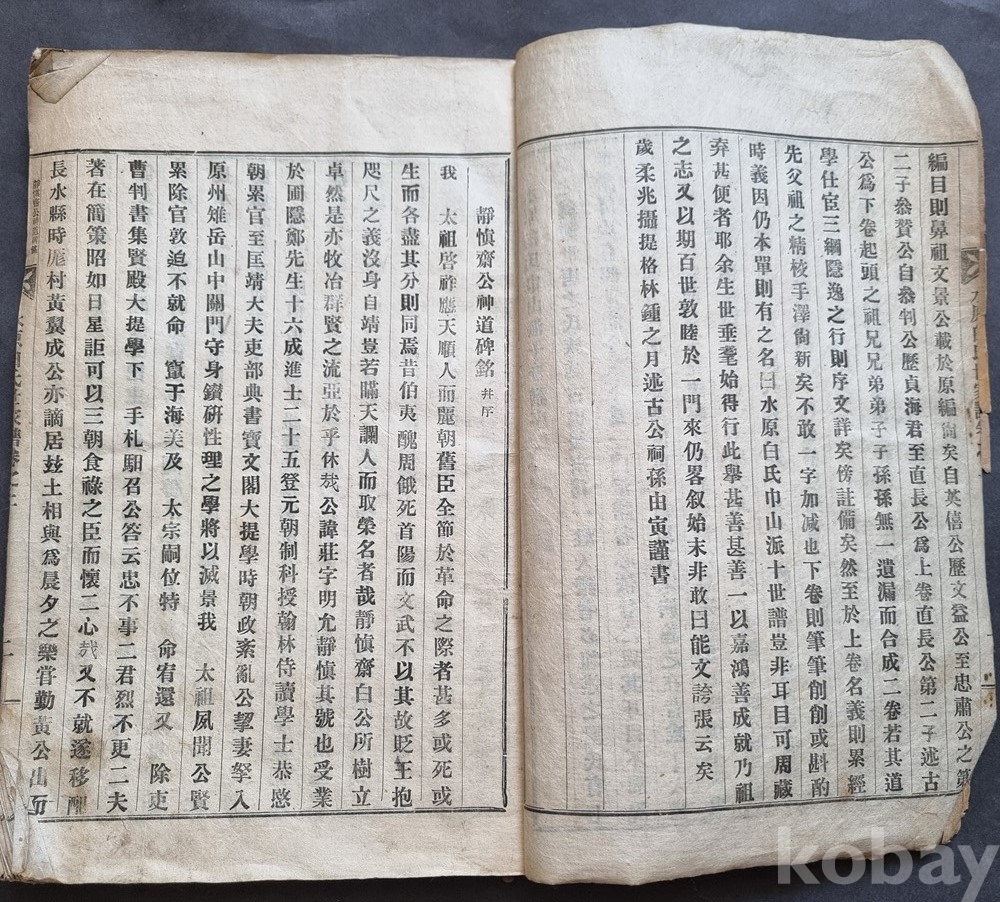 編目則鼻祖文景公載於原編尙矣自英僖公歷文益公至忠肅公之第
二子叅贊公自叅判公歷貞海君至直長公爲上卷直長公第二子述古
公爲下卷起頭之祖兄兄弟弟子子孫孫無一遺漏而合成二卷若其道
學仕宦三綱隱逸之行則序文詳矣傍註備矣然至於上卷名義則累經
先父祖之精校手澤尙新矣不敢一字加减也下卷則筆筆創創或斟酌
時義因仍本單則有之名曰水原白氏巾山派十世譜豈非耳目可周藏
弆甚便者耶余生世垂耄始得行此擧甚善甚善一以嘉鴻善成就乃祖
之志又以期百世敦睦於一門來仍畧叙始末非敢曰能文誇張云矣
歲柔兆攝提格林鍾之月述古公祠孫由寅謹書
靜愼齋公神道碑銘 并序
我 太祖啓祚應天順人而麗朝舊臣全節於革命之際者甚多或死或
生而各盡其分則同焉昔伯夷醜周餓死首陽而文武不以其故貶王抱
咫尺之義沒身自靖豈若瞞天讕人而取榮名者哉靜愼齋白公所樹立
卓然是亦牧冶群賢之流亞於乎休哉公諱莊字明允靜愼其號也受業
於圃隱鄭先生十六成進士二十五登元朝制科授翰林侍讀學士恭愍
朝累官至匡靖大夫吏部典書寶文閣大提學時朝政紊亂公挈妻孥入
原州雉岳山中關門守身鑽硏性理之學將以滅景我 太祖夙聞公賢
累除官敦迫不就命 竄于海美及 太宗嗣位特 命宥還又 除吏
曹判書集賢殿大提學下 手札馹召公答云忠不事二君烈不更二夫
著在簡策昭如日星詎可以三朝食祿之臣而懷二心哉又不就遂移配
長水縣時厖村黃翼成公亦謫居玆土相與爲晨夕之樂甞勤黃公出而